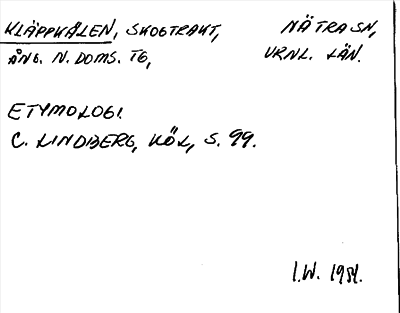 KLÄPPKÄLEN, SKOGTRAKT, NÄTRA SN,
ÅNG. N. DOMS. TG, VRNL. LÄN.
ETYMOLOGI.
C. LINDBERG, KÖL, S. 99.
I.W. 1981.